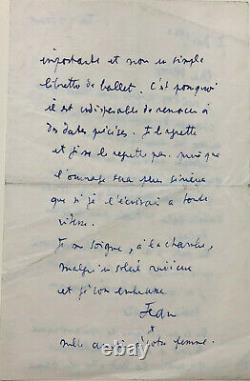 importante et non un simple
libretto de ballet. C'est pourquoi
il est indispensable de renoncer à
des dates précises. Je regrette
et je ne le regrette pas. puisque
l'ouvrage sera plus sérieux
que si je l'écrivais à toute
vitesse.
Je me soigne, à la chambre,
malgré un soleil
et je vous embrasse
Jean
*
mille amitiés à votre femme.
ebay